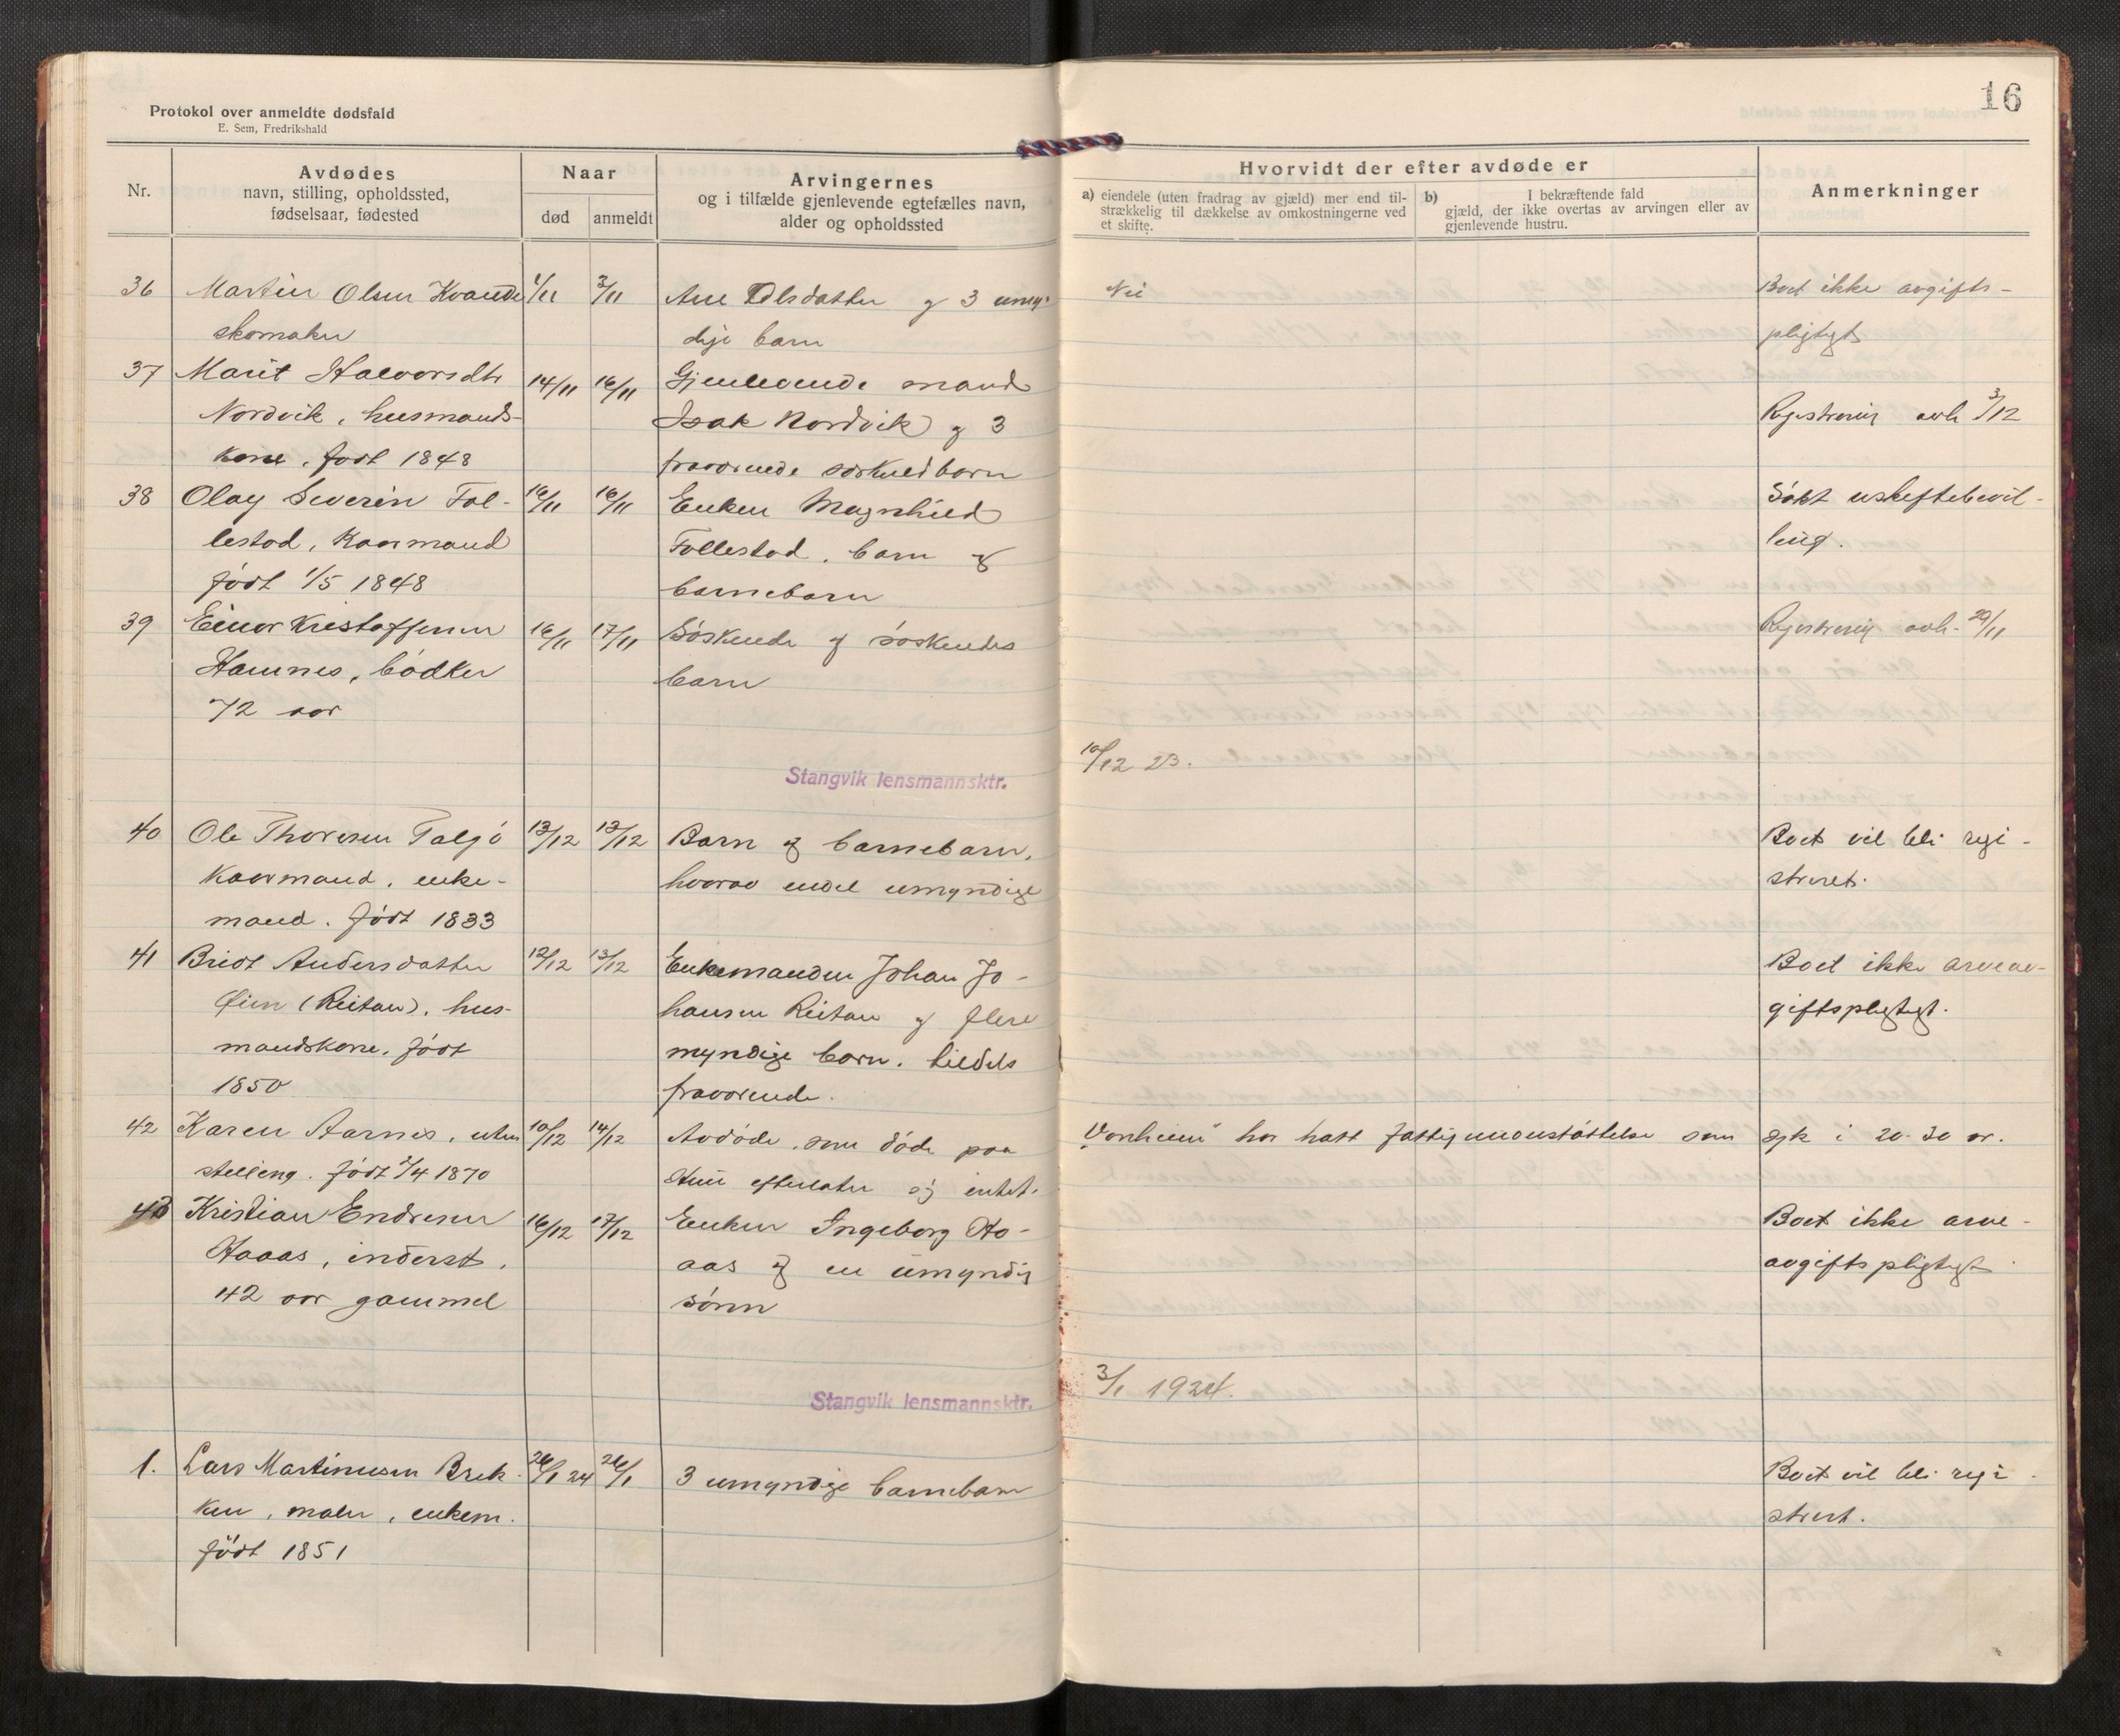 Protokol over anmeldte dødsfald
E. Sem, Fredrikshald
16
Nr.
Avdødes
navn, stilling, opholdssted,
fødselsaar, fødested
Naar
død
anmeldt
Arvingernes
og i tilfælde gjenlevende egtefælles navn,
alder og opholdssted
Hvorvidt der efter avdøde er
a) eiendele (uten fradrag av gjæld) mer end til-
strækkelig til dækkelse av omkostningerne ved
et skifte.
b) I bekræftende fald
gjæld, der ikke overtas av arvingen eller av
gjenlevende hustru.
Anmerkninger
36 Martin Olsen Kvande 1/11 3/11 Ane Olsdatter og 3 umyn- Nei Boet ikke avgifts-
skomaker dige barn pligtigt
37 Marit Halvorsdtr 14/11 16/11 Gjenlevende mand
Nordvik, husmands- Isak Nordvik og 3 Registrering avh 3/12
kone, født 1848 fraværende særkuldbarn
38 Olay Severin Fol- 16/11 16/11 Enken Magnhild Søkt uskiftebevil-
lestad, kaarmand Follestad, barn og ling.
født 1/5 1848 barnebarn
39 Einar Kristoffersen 16/11 17/11 Søskende og søskendes Registrering avh. 29/11
Hamnes, bødker barn
72 aar
Stangvik lensmannsktr. 10/12 23.
40 Ole Thoresen Taljø 13/12 13/12 Barn og barnebarn, Boet vil bli regi-
kaarmand, enke- hvorav endel umyndige streret.
mand. født 1833
41 Bridt Andersdatter 12/12 13/12 Enkemanden Johan Jo- Boet ikke arveav-
Øien (Reitan), hus- hansen Reitan og flere giftspligtigt.
mandskone, født myndige barn, tildels
1850 fraværende.
42 Karen Aarnes, uten 10/12 14/12 Avdøde, som døde paa "Vonheim" har hatt fattigunderstøttelse som sjk i 20-30 år.
stilling. født 2/4 1870 efterlater sig intet.
43 Kristian Endresen 16/12 17/12 Enken Ingeborg Ho- Boet ikke arve-
Hoaas, inderst, aas og en umyndig avgiftspligtigt
42 aar gammel sønn
Stangvik lensmannsktr. 3/1 1924.
1. Lars Martinusen Brek- 26/1 24 26/1 3 umyndige barnebarn Boet vil bli regi-
ken, maler, enkem. strert.
født 1851